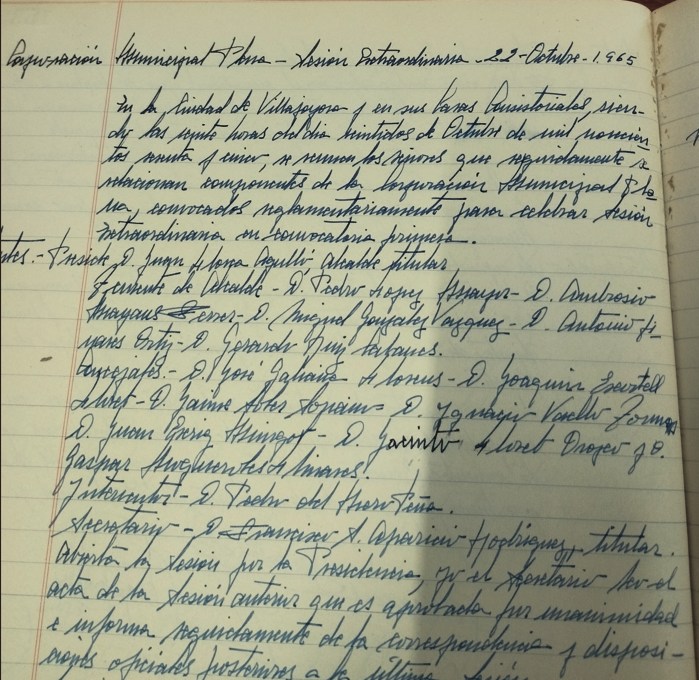 Corporación Municipal Plena - Sesión Extraordinaria - 22 - Octubre - 1.965
En la Ciudad de Villajoyosa y en sus Casas Consistoriales, sien-
do las veinte horas del día veintidos de Octubre de mil novecien
tos sesenta y cinco, se reunen los señores que seguidamente se
relacionan componentes de la Corporación Municipal Ple
na, convocados reglamentariamente para celebrar Sesión
Extraordinaria en convocatoria primera.
ntes.- Preside D. Juan Llona Agulló Alcalde titular
Teniente de Alcalde - D. Pedro Lopez Mayor - D. Ambrosio
Mayans Ferrer - D. Miguel González Vazquez - D. Antonio Li-
nares Ortiz - D. Gerardo Ruiz
Concejales.- D. José Galiana Llorens - D. Joaquin
Lloret - D. Jaime Soriano D. Ignacio Vaello
D. Juan - D. Jacinto Lloret y D.
Gaspar Linares.
Interventor - D. Pedro del Hierro Peña.
Secretario - D. Francisco A. Aparicio Rodríguez, titular.
Abierta la Sesión por la Presidencia, yo el Secretario leo el
acta de la Sesión anterior que es aprobada por unanimidad
e informa seguidamente de la correspondencia y disposi-
ciones oficiales posteriores a la última Sesión